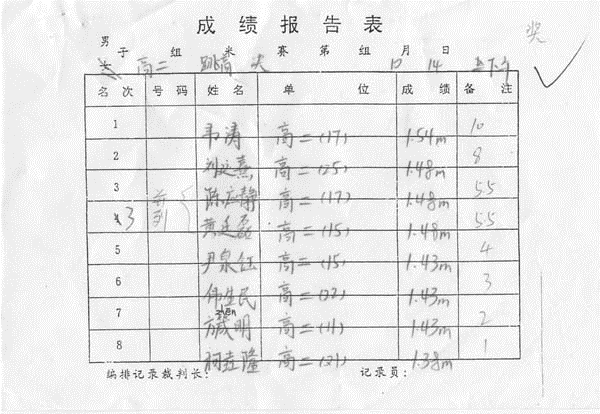 成绩报告表
奖
男子 组 米 赛 第 组 月 日
高二 跳高 决 10 14 上下午
名次 号码 姓名 单位 成绩 备注
1 韦涛 高二(17) 1.54m 10
2 刘文熹 高二(25) 1.48m 8
3 陈应静 高二(17) 1.48m 5.5
并列
3 黄廷磊 高二(15) 1.48m 5.5
5 尹泉钰 高二(15) 1.43m 4
6 伟生民 高二(22) 1.43m 3
7 方威明 高二(11) 1.43m 2
8 隆 高二(21) 1.38m 1
编排记录裁判长: 记录员: